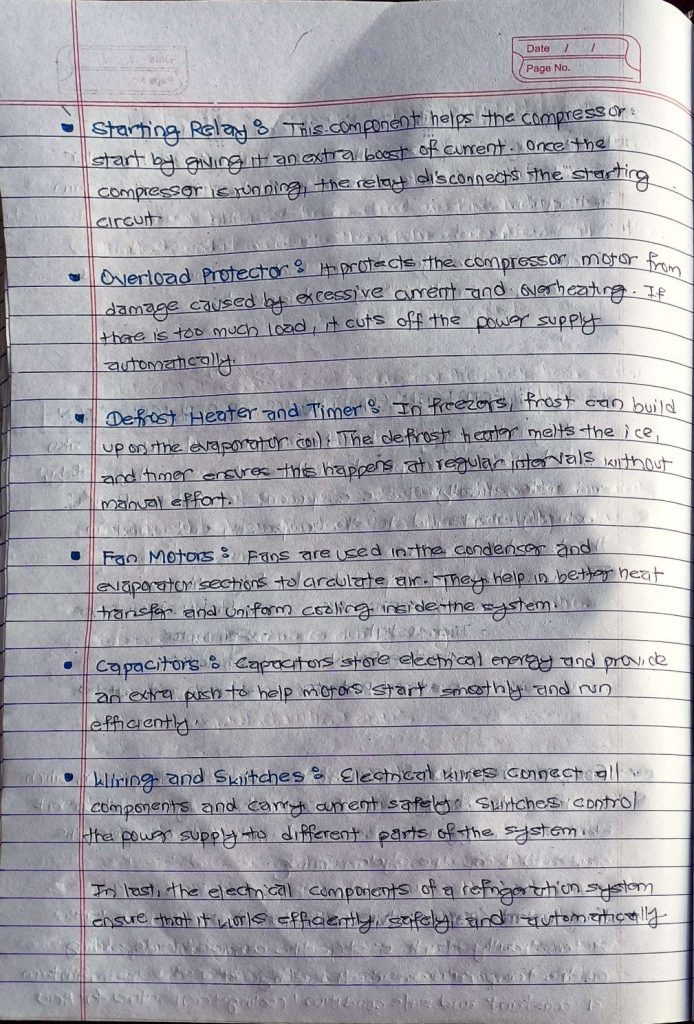 Date / /
Page No.
• Starting Relay : This component helps the compressor
start by giving it an extra boost of current. Once the
compressor is running, the relay disconnects the starting
circuit.
• Overload Protector : It protects the compressor motor from
damage caused by excessive current and overheating. If
there is too much load, it cuts off the power supply
automatically.
• Defrost Heater and Timer : In freezers, frost can build
up on the evaporator coil. The defrost heater melts the ice,
and timer ensures this happens at regular intervals without
manual effort.
• Fan Motors : Fans are used in the condenser and
evaporator sections to circulate air. They help in better heat
transfer and uniform cooling inside the system.
• Capacitors : Capacitors store electrical energy and provide
an extra push to help motors start smoothly and run
efficiently.
• Wiring and Switches : Electrical wires connect all
components and carry current safely. Switches control
the power supply to different parts of the system.
In last, the electrical components of a refrigeration system
ensure that it works efficiently, safely, and automatically